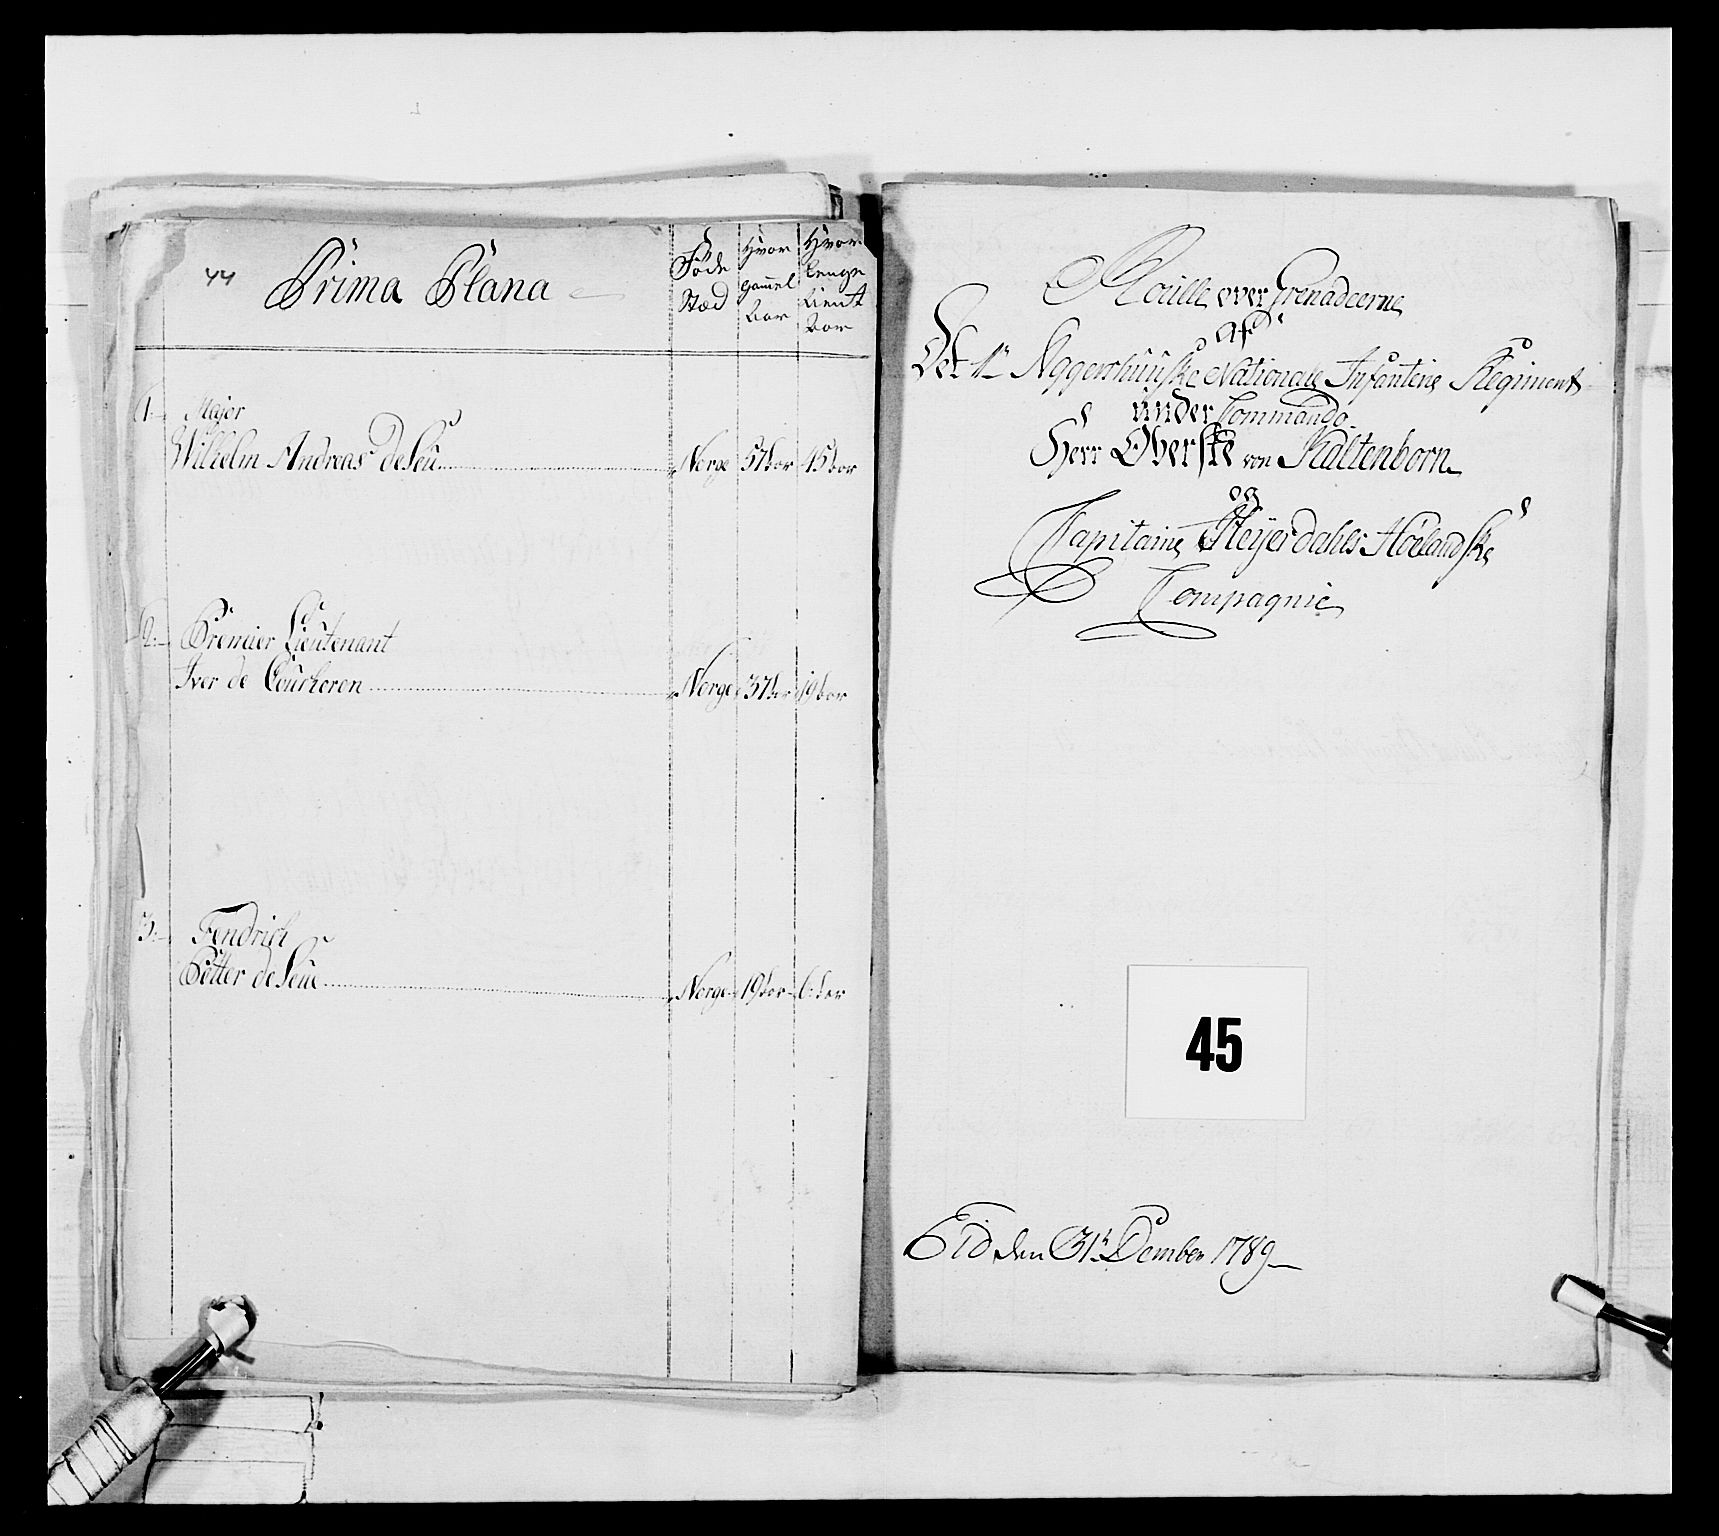 44
Prima Plana
Føde
Stæd
Hvor
gamel
Hvor
lenge
tient
1.
Major
Wilhelm Andreas de Seu
Norge
57 aar
45 aar
2.
Premier Lieutenant
Iver de Coucheron
Norge
37 aar
19 aar
3.
Fendrich
Petter de Seue
Norge
19 aar
6 aar
Roulle over Grenadeerne
af
Det 1te Aggershuuiske Nationale Infanterie Regiment
under Commando
Herr Oberste von Kaltenborn
og
Capitaine Heyerdahls Hoelandske
Compagnie
45
Eid den 31te Dember 1789